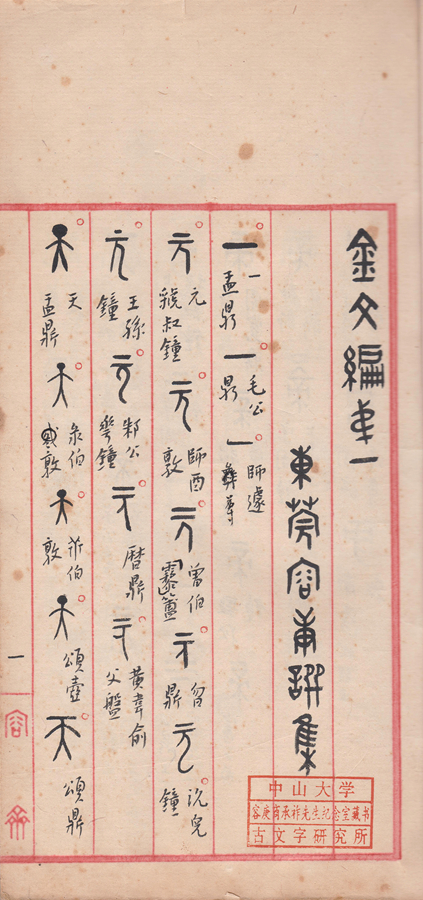 金文編弟一
東莞容庚譔集
一 一 盂鼎 一 毛公鼎 一 師遽
元 元 虢叔鐘 元 師酉敦 元 曾伯簠 元 曶鼎 元 沇兒鐘
元 王孫鐘 元 邾公華鐘 元 曆鼎 元 黃韋俞父盤
天 天 盂鼎 天 彔伯㦰敦 天 伯敦 天 頌壺 天 頌鼎
一
容
中山大学
容庚商承祚先生纪念室藏书
古文字研究所